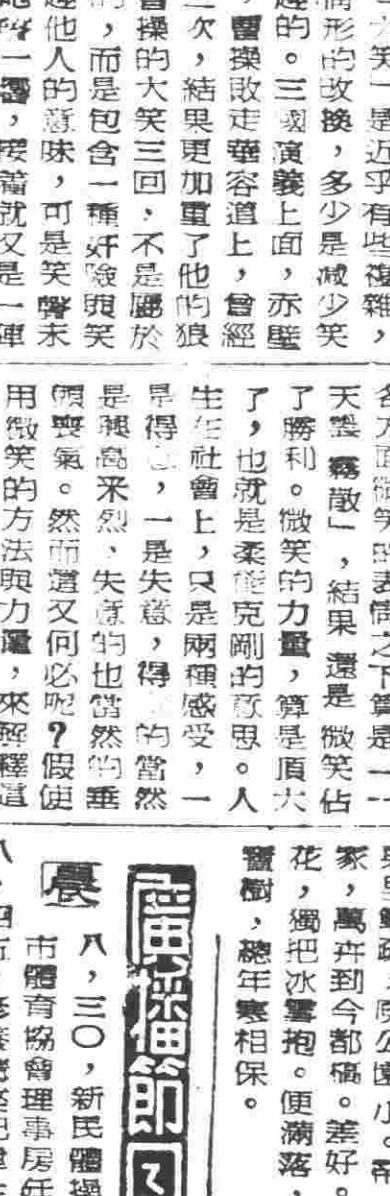 大笑一是近乎有些複雜，
情形的改換，多少是减少笑
趣的。三國演義上面，赤壁
，曹操敗走華容道上，曾經
次，結果更加重了他的狠
曹操的大笑三回，不是屬於
的，而是包含一種奸險與笑
趣他人的意味，可是笑聲未
一響，接著就又是一陣
各方面微笑的表情之下算是一一
天雲霧散」，結果還是微笑佔
了勝利。微笑的力量，算是頂大
了，也就是柔能克剛的意思。人
生在社會上，只是兩種感受，一
是得，一是失意，得的當然
是興高釆烈、失意的也當然的垂
頭喪氣。然而這又何必呢？假使
用微笑的方法與力量，來解釋這
家，萬卉到今都槁。差好
花，獨把冰雪抱。便滿落
寶樹，總年寒相保。
廣播節目
晨
八，三〇，新民體操
市體育協會理事房